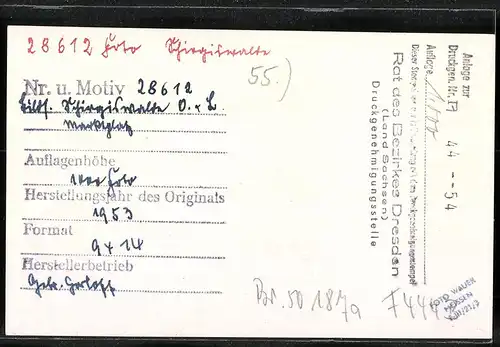 28612 Foto Schirgiswalde
55.)
Nr. u. Motiv 28612
Schirgiswalde O.-L.
Marktplatz
Auflagenhöhe
1000 Foto
Herstellungsjahr des Originals
1953
Format
9x14
Herstellerbetrieb
Gebr. Garloff
Anlage zur
Druckgen. Nr. 44 - - 54
Auflage
Rat des Bezirkes Dresden
(Land Sachsen)
Druckgenehmigungsstelle
FOTO WAUER
MEISSEN